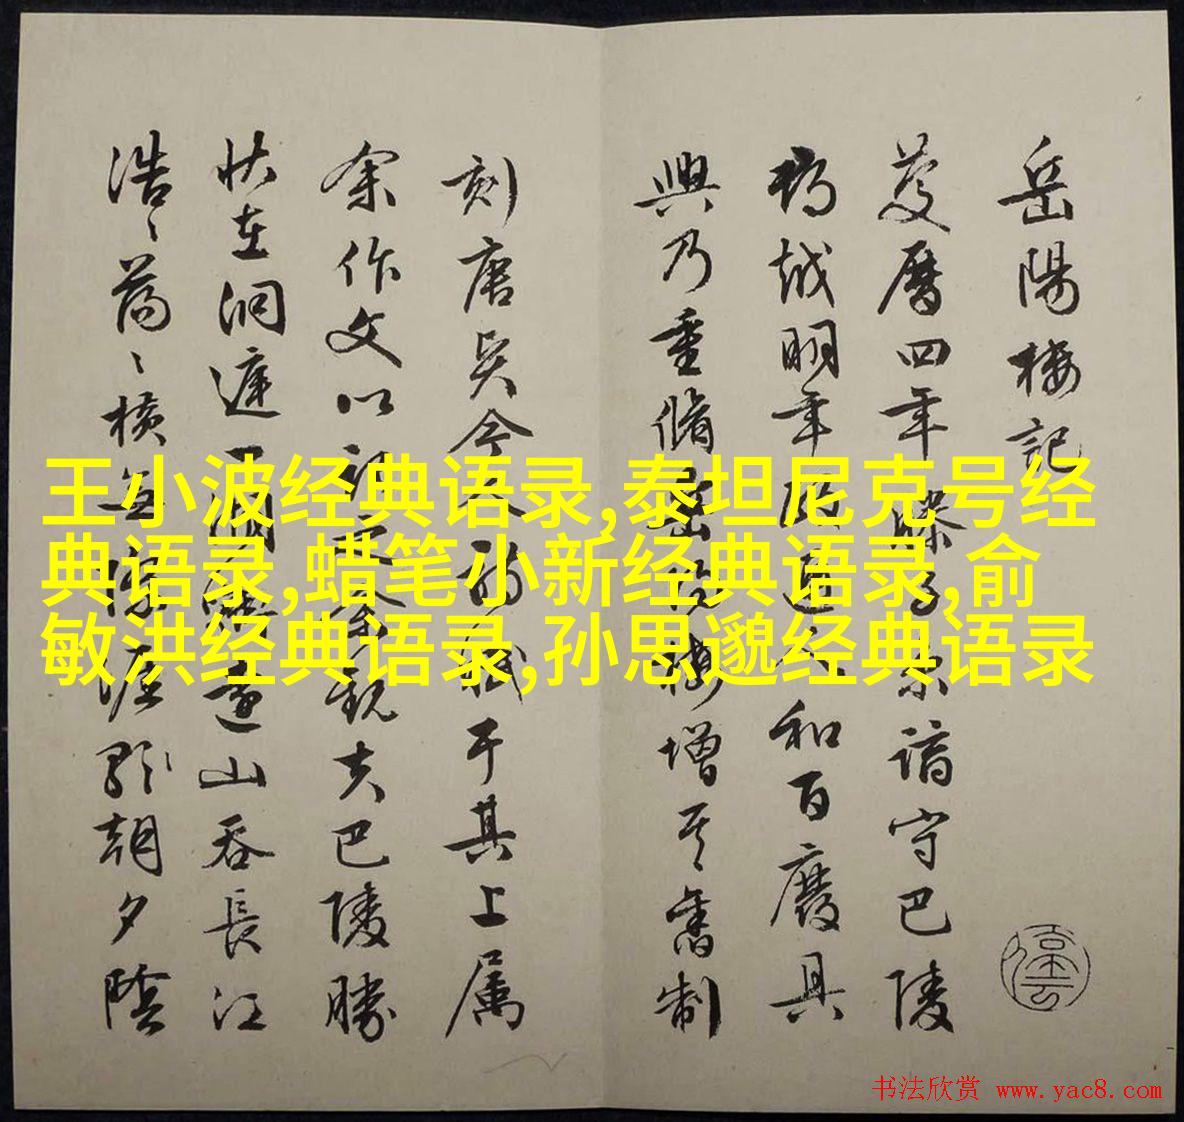 岳陽樓記
慶曆四年滕子京謫守巴陵
郡越明年政通人和百廢具
興乃重脩岳陽樓增其舊制
刻唐賢今人詩賦于其上属
余作文以記之余觀夫巴陵勝
状在洞庭一湖銜遠山吞長江
浩〻蕩〻橫無際涯朝夕陰
王小波经典语录,泰坦尼克号经
典语录,蜡笔小新经典语录,俞
敏洪经典语录,孙思邈经典语录
书法欣赏 www.yac8.com